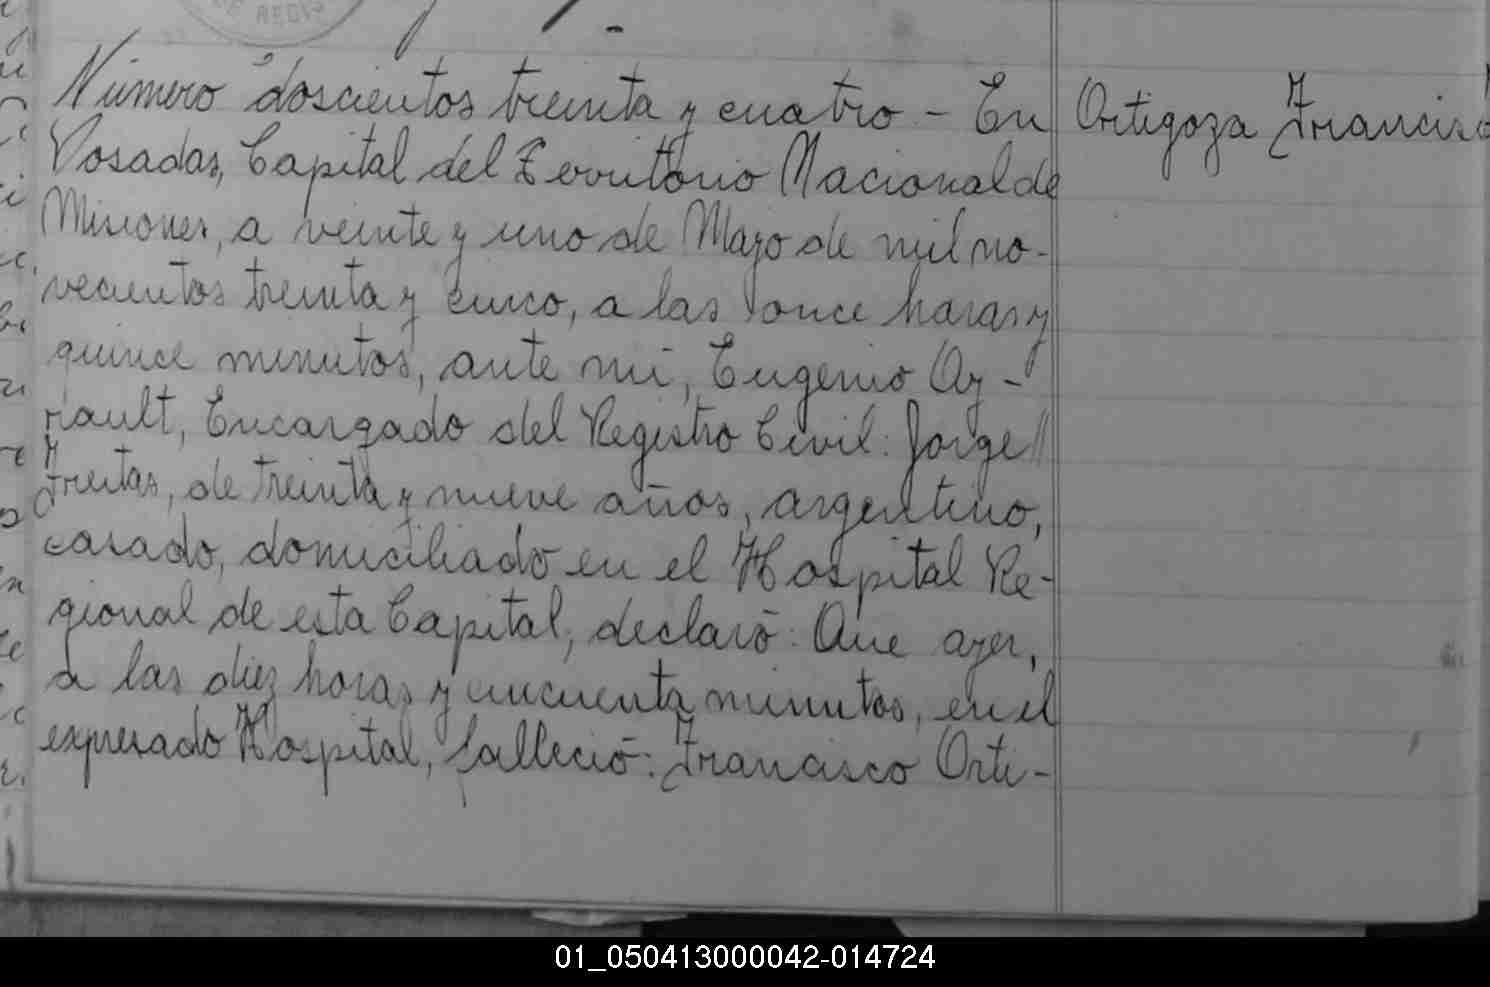 DE REGIS
Número doscientos treinta y cuatro - En
Posadas, Capital del Territorio Nacional de
Misiones, a veinte y uno de Mayo de mil no-
vecientos treinta y cinco, a las once horas y
quince minutos, ante mi, Eugenio Ay-
rault, Encargado del Registro Civil: Jorge
Freitas, de treinta y nueve años, argentino,
casado, domiciliado en el Hospital Re-
gional de esta Capital, declaró: Que ayer,
a las diez horas y cincuenta minutos, en el
expresado Hospital, falleció: Francisco Orti-
Ortigoza Francisco
01_050413000042-014724